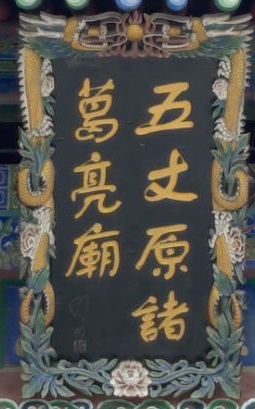 五丈原諸
葛亮廟